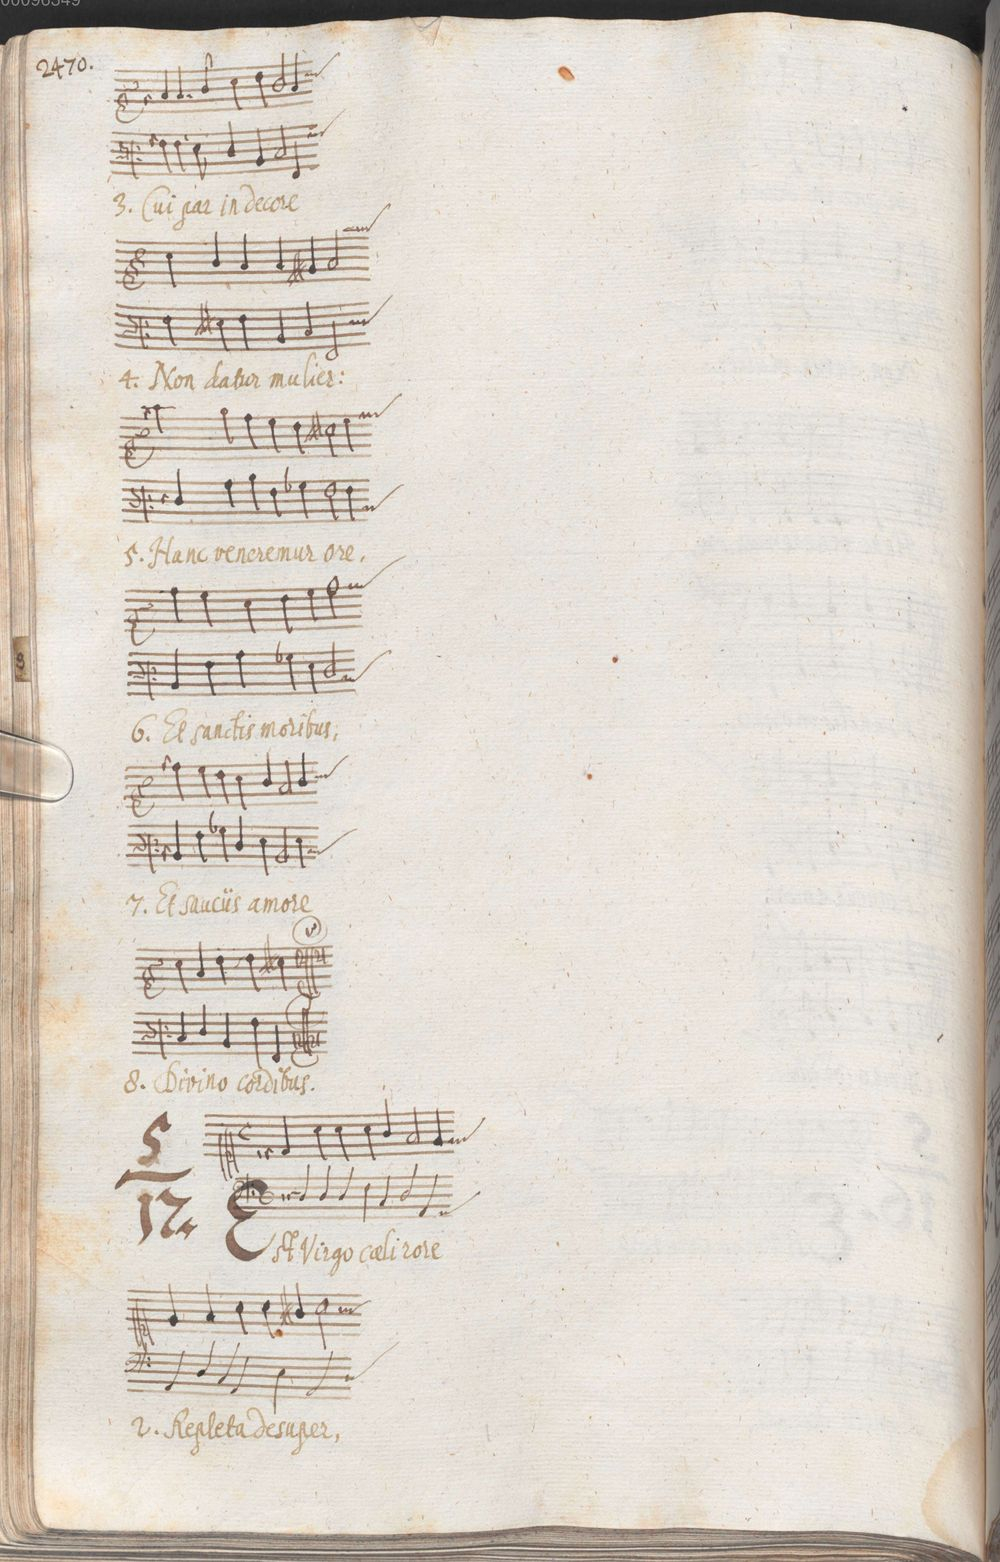 2470.
3. Cui par in decore
4. Non datur mulier:
5. Hanc veneremur ore,
6. Et sanctis moribus,
7. Et sauciis amore
8. Divino cordibus.
5
17.
Est Virgo cæli rore
2. Repleta desuper,